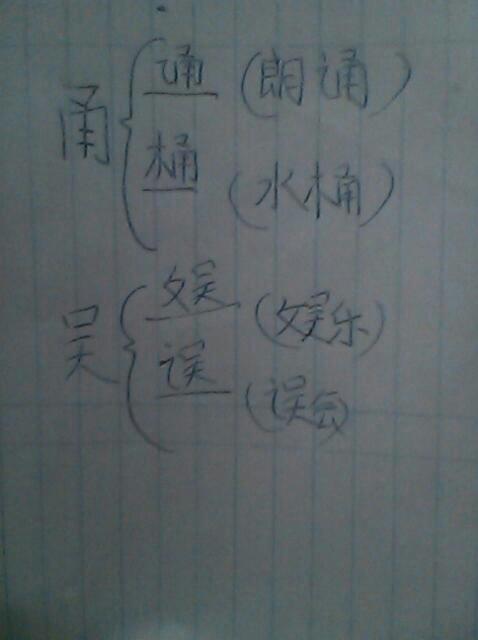 甬 诵 (朗诵)
桶 (水桶)
吴 娱 (娱乐)
误 (误会)